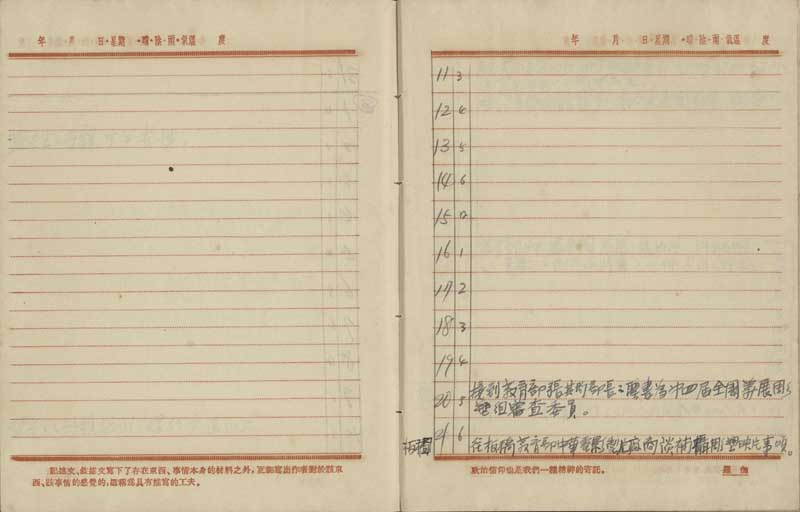 年 月 日·星期 ·晴·陰·雨·氣溫 度
記述文、敘述文寫下了存在東西、事情本身的材料之外,更能寫出作者對於該東
西、該事情的感覺的,這稱為具有描寫的工夫。
年 月 日·星期 ·晴·陰·雨·氣溫 度
11 3
12 4
13 5
14 6
15 日
16 1
17 2
18 3
19 4
20 5 接到教育部張其昀部長之聘書為第四届全國美展
審查委員。
21 6 板橋 往板橋教育部中華電影製片廠商談補 事項。
政治信仰也是我們一種精神的寄託。